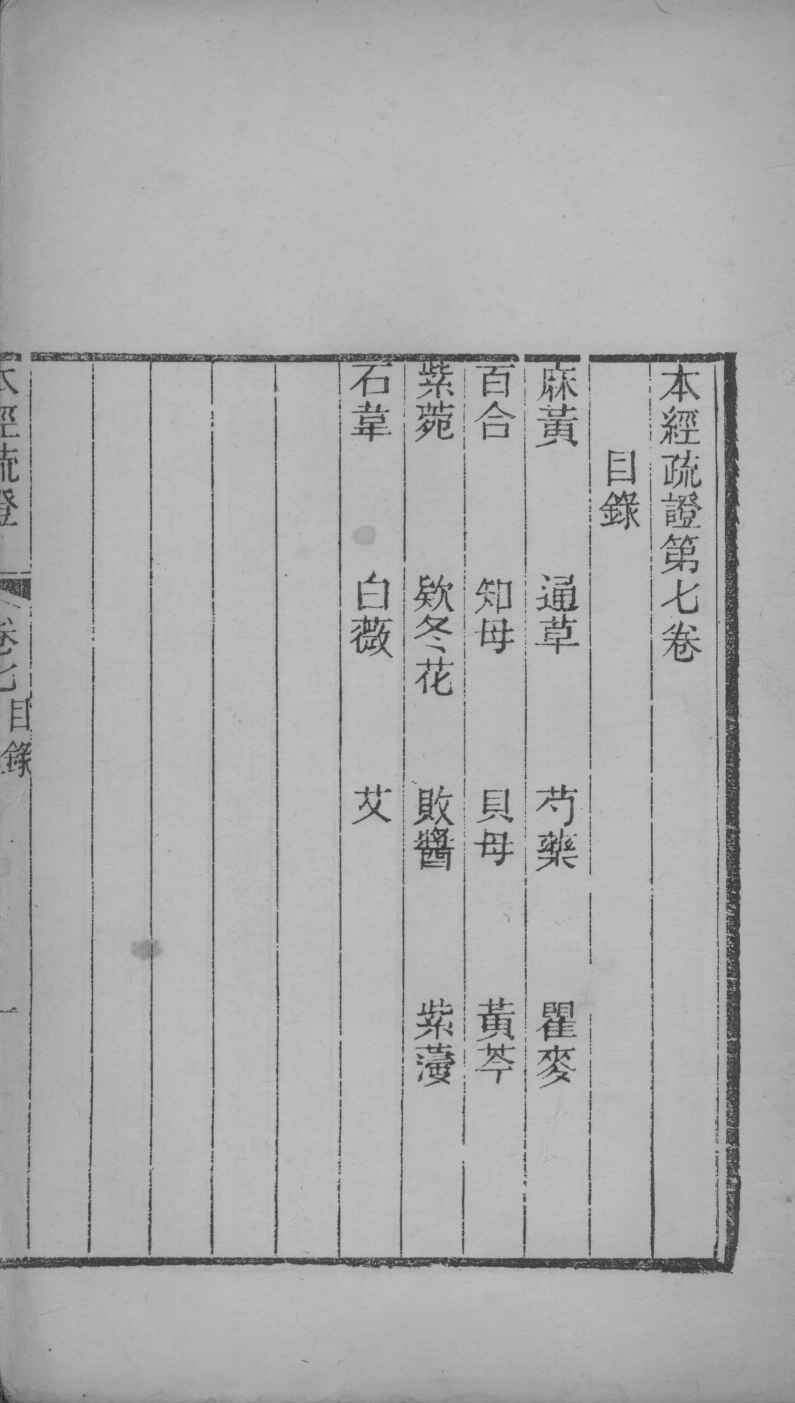 本經疏證第七卷
目錄
麻黃 通草 芍藥 瞿麥
百合 知母 貝母 黃芩
紫菀 欵冬花 敗醬 紫薓
石韋 白薇 艾
本經疏證 卷七目錄 一